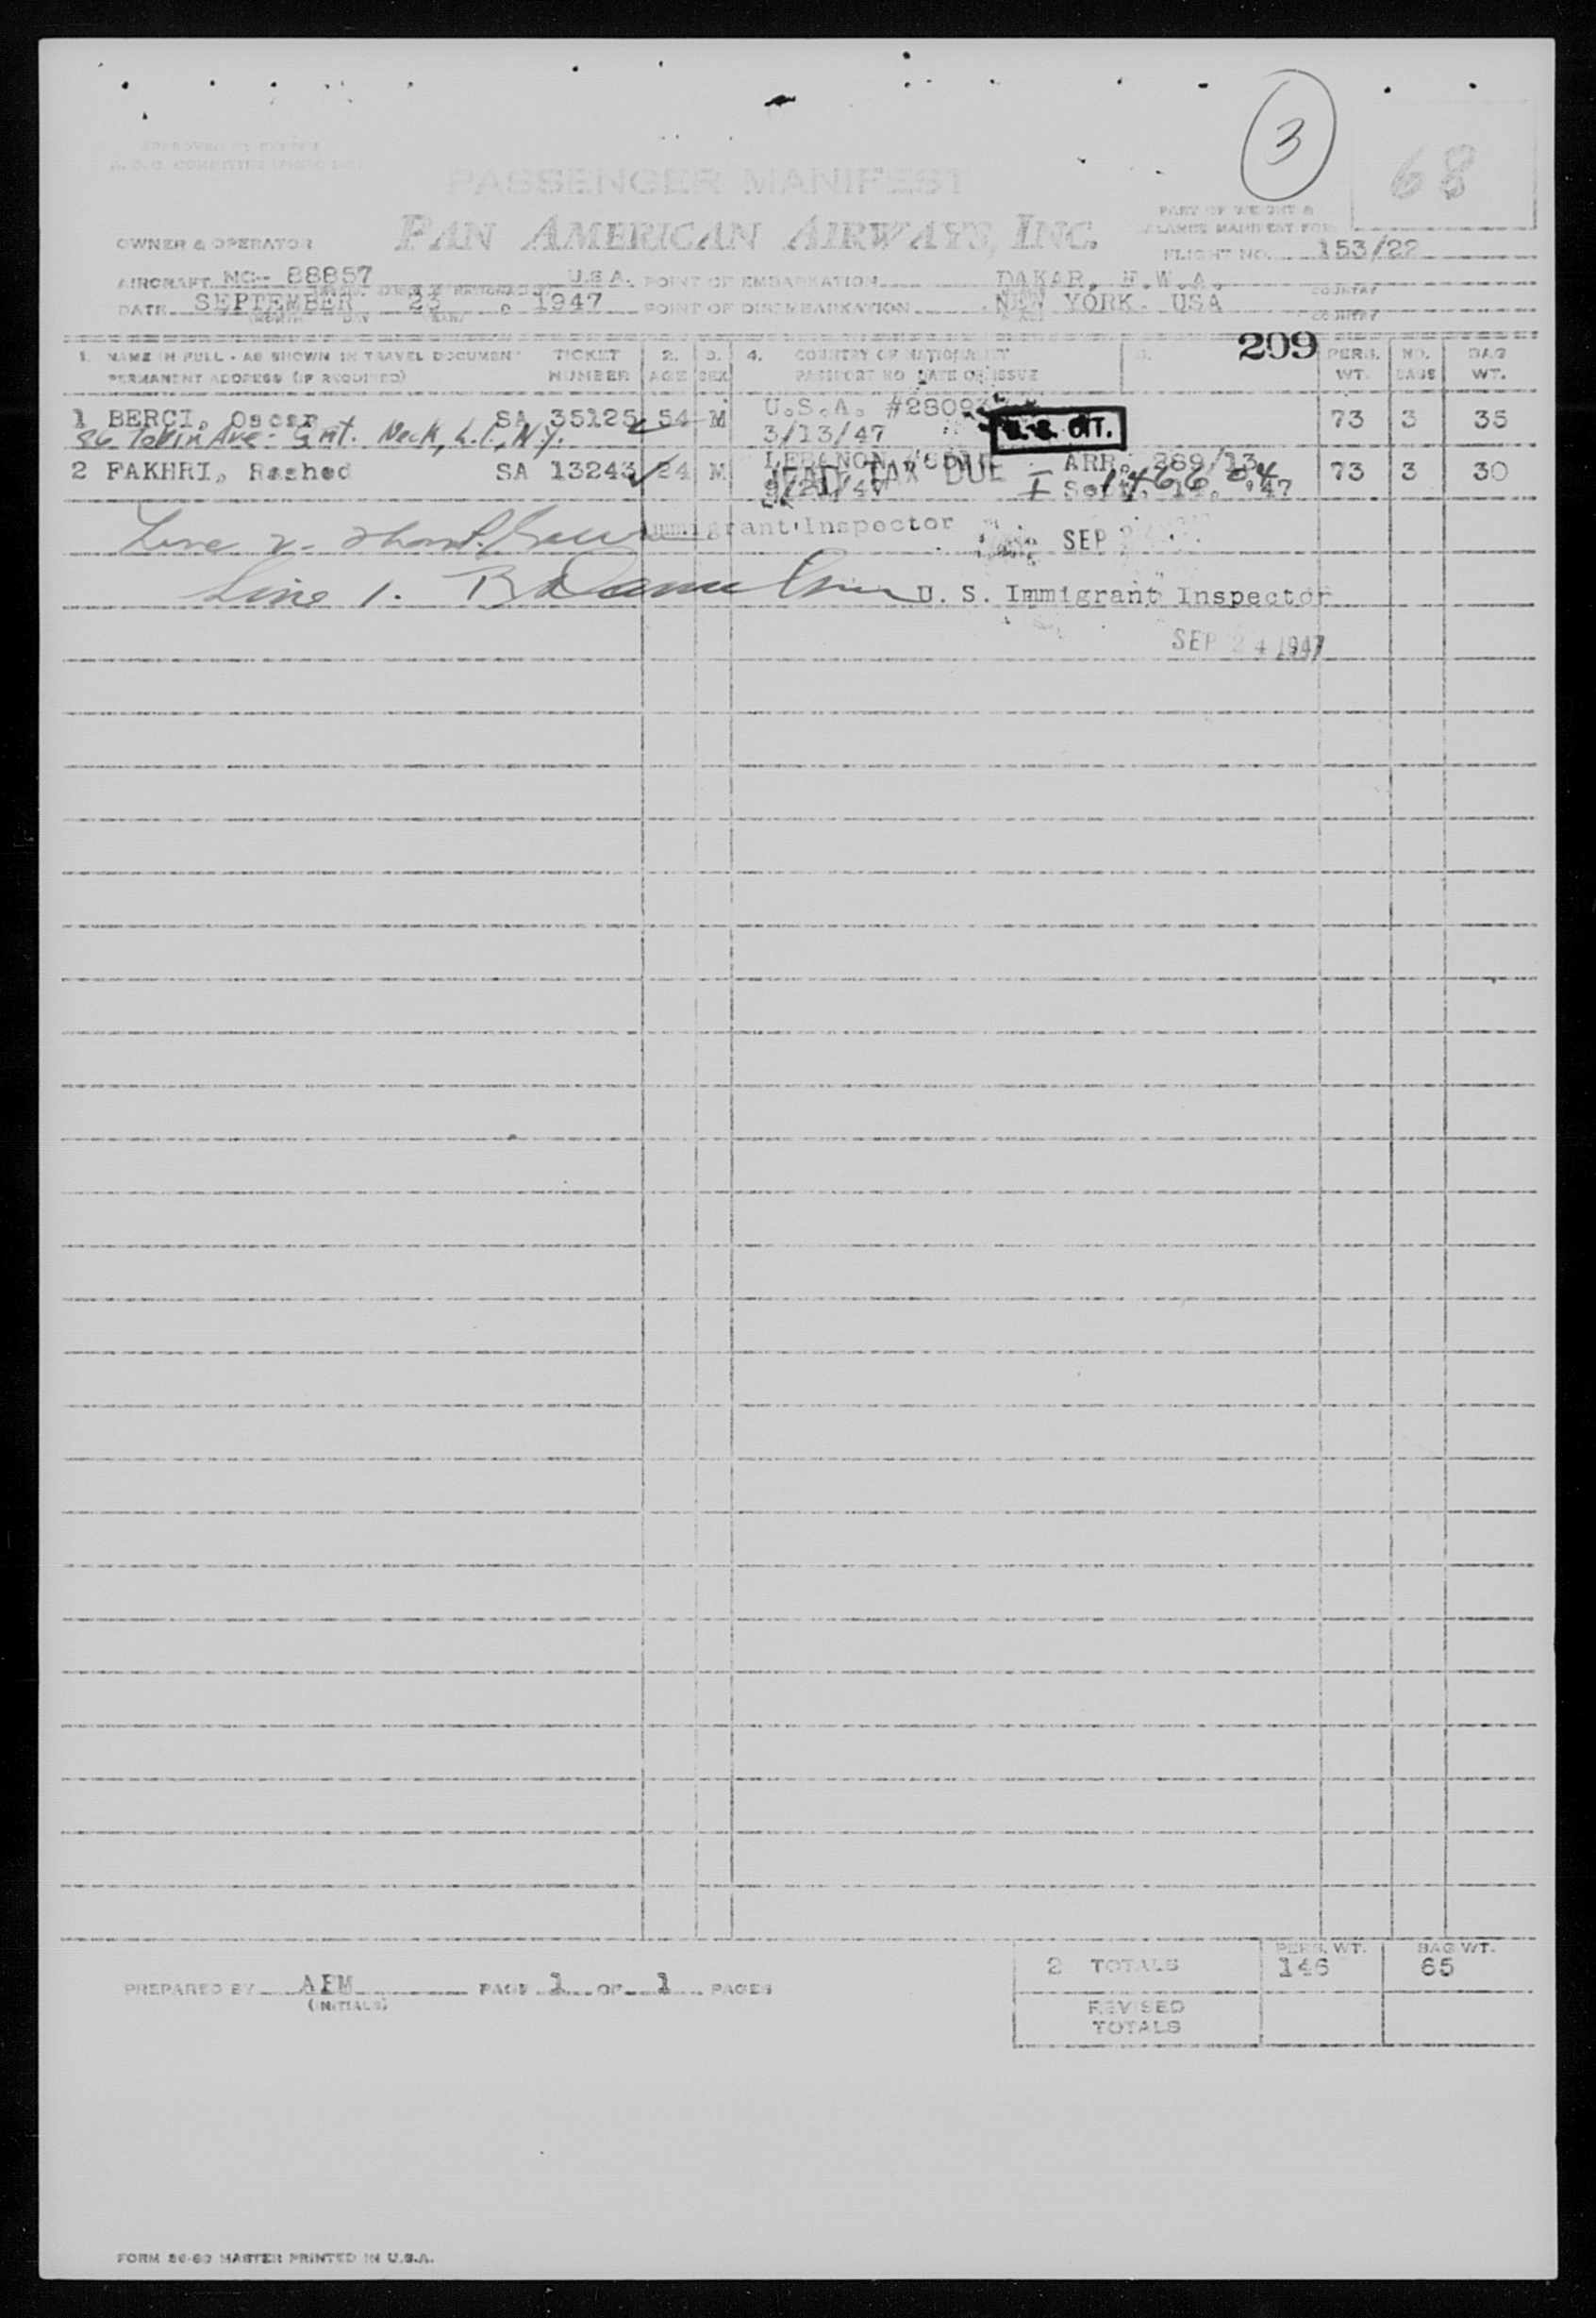 3
68
PASSENGER MANIFEST
PART OF WEIGHT &
BALANCE MANIFEST FOR
OWNER & OPERATOR PAN AMERICAN AIRWAYS, INC.
FLIGHT NO. 153/22
AIRCRAFT NC- 88857 U.S.A. POINT OF EMBARKATION DAKAR, F.W.A.
COUNTRY
DATE SEPTEMBER 23, 1947 POINT OF DISEMBARKATION NEW YORK. USA
(MONTH DAY YEAR) COUNTRY
209
1. NAME IN FULL - AS SHOWN IN TRAVEL DOCUMENT TICKET 2. 3. 4. COUNTRY OF NATIONALITY 5. PERS. NO. BAG
PERMANENT ADDRESS (IF REQUIRED) NUMBER AGE SEX PASSPORT NO DATE OF ISSUE WT. BAGS WT.
1 BERCI, Oscar SA 35125 54 M U.S.A. #28093 U. S. CIT. 73 3 35
Ave. Neck, L.I., N.Y. 3/13/47
2 FAKHRI, Rashed SA 13243 24 M LEBANON ARR. 289/13 73 3 30
HEAD TAX DUE I Sept. '47
Line 2 - Immigrant Inspector SEP
Line 1. U. S. Immigrant Inspector
SEP 24 1947
2 TOTALS PERS. WT. 146 BAG WT. 65
PREPARED BY AFM PAGE 1 OF 1 PAGES
(INITIALS)
REVISED
TOTALS
FORM 86-60 MASTER PRINTED IN U.S.A.